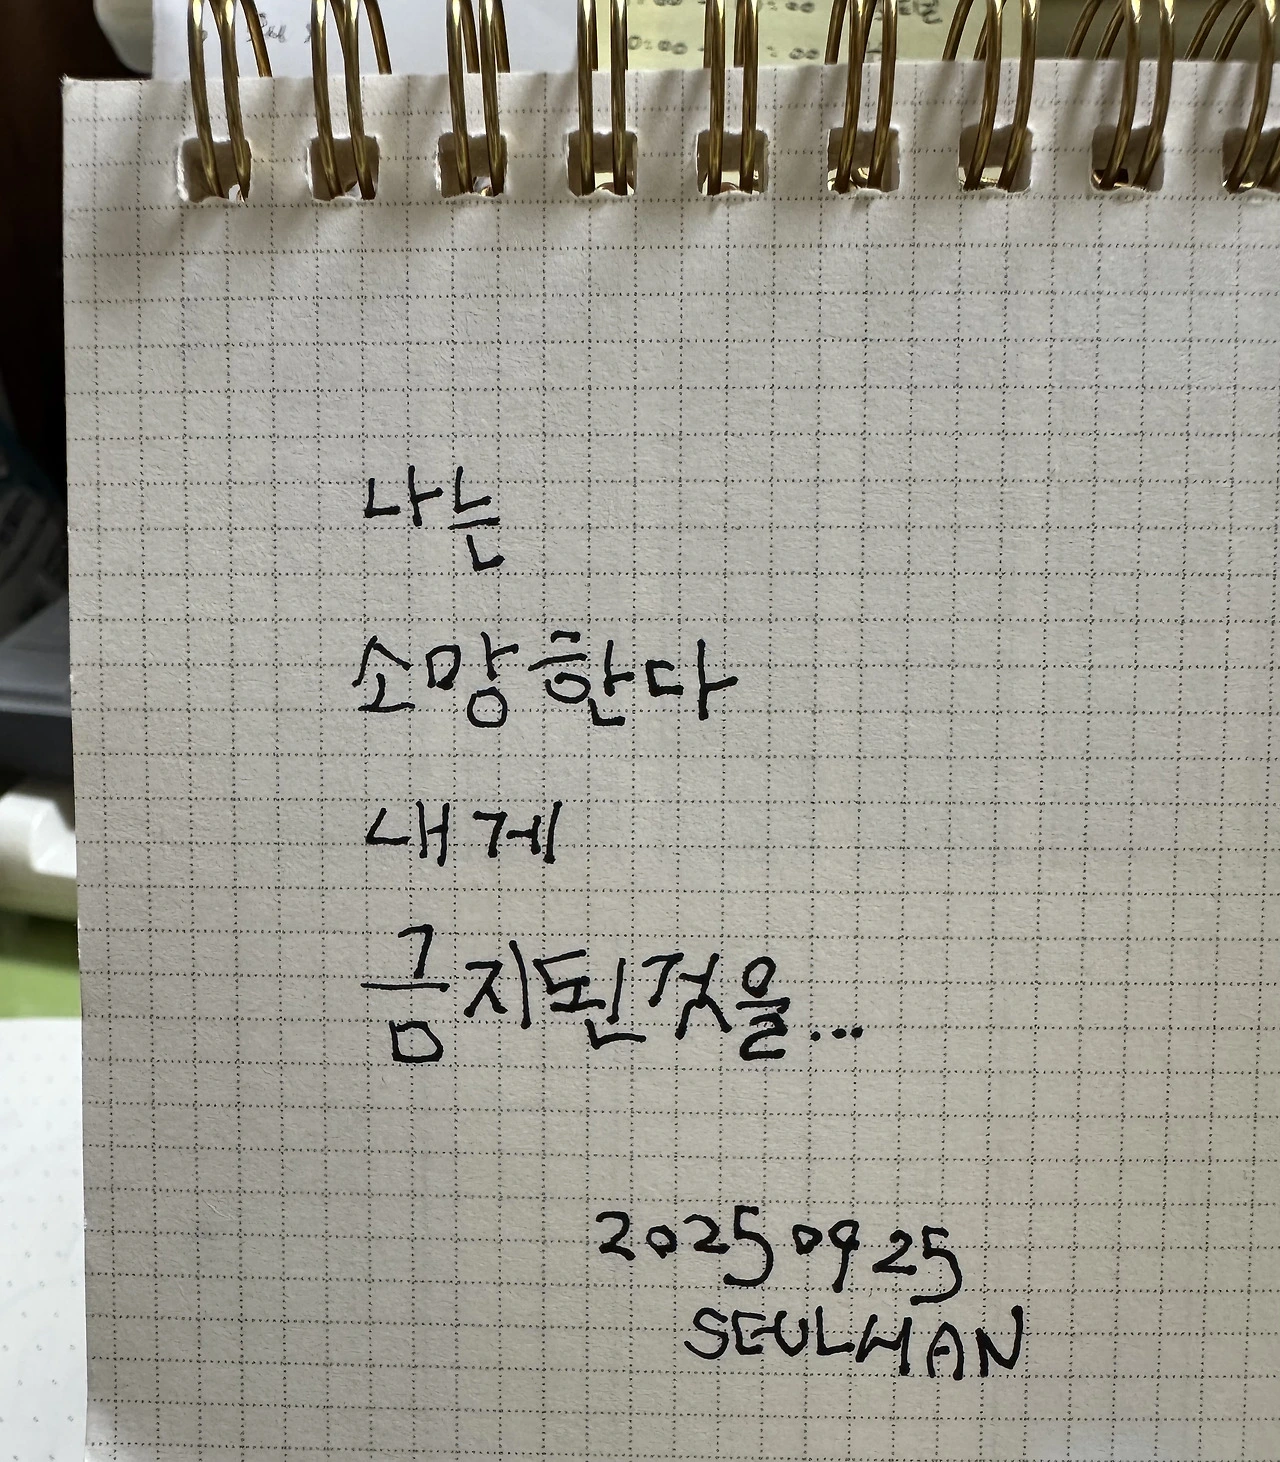 나는
소망한다
내게
금지된것을...
2025 09 25
SEULHAN